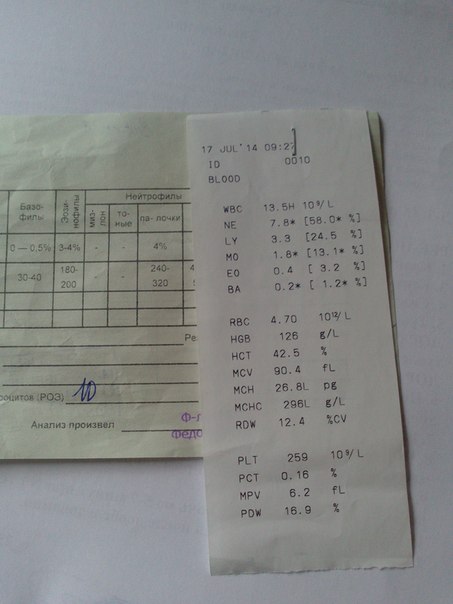 Нейтрофилы
Базо-
филы
Эози-
нофилы
миэ-
лон
то-
ные
па- лочки
0 — 0,5% 3-4% - - 4%
30-40 180-
200 - - 240-
320
Ре
роцитов (РОЭ) 10
Анализ произвел
Ф-л
Федо
17 JUL'14 09:27
ID 0010
BLOOD
WBC 13.5H 10⁹/L
NE 7.8* [58.0* %]
LY 3.3 [24.5 %]
MO 1.8* [13.1* %]
EO 0.4 [ 3.2 %]
BA 0.2* [ 1.2* %]
RBC 4.70 10¹²/L
HGB 126 g/L
HCT 42.5 %
MCV 90.4 fL
MCH 26.8L pg
MCHC 296L g/L
RDW 12.4 %CV
PLT 259 10⁹/L
PCT 0.16 %
MPV 6.2 fL
PDW 16.9 %